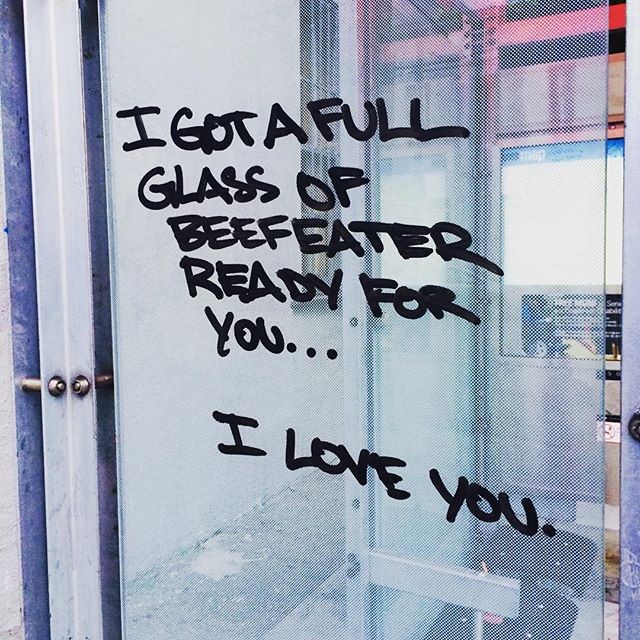 I GOT A FULL
GLASS OF
BEEFEATER
READY FOR
YOU...
I LOVE YOU.
map